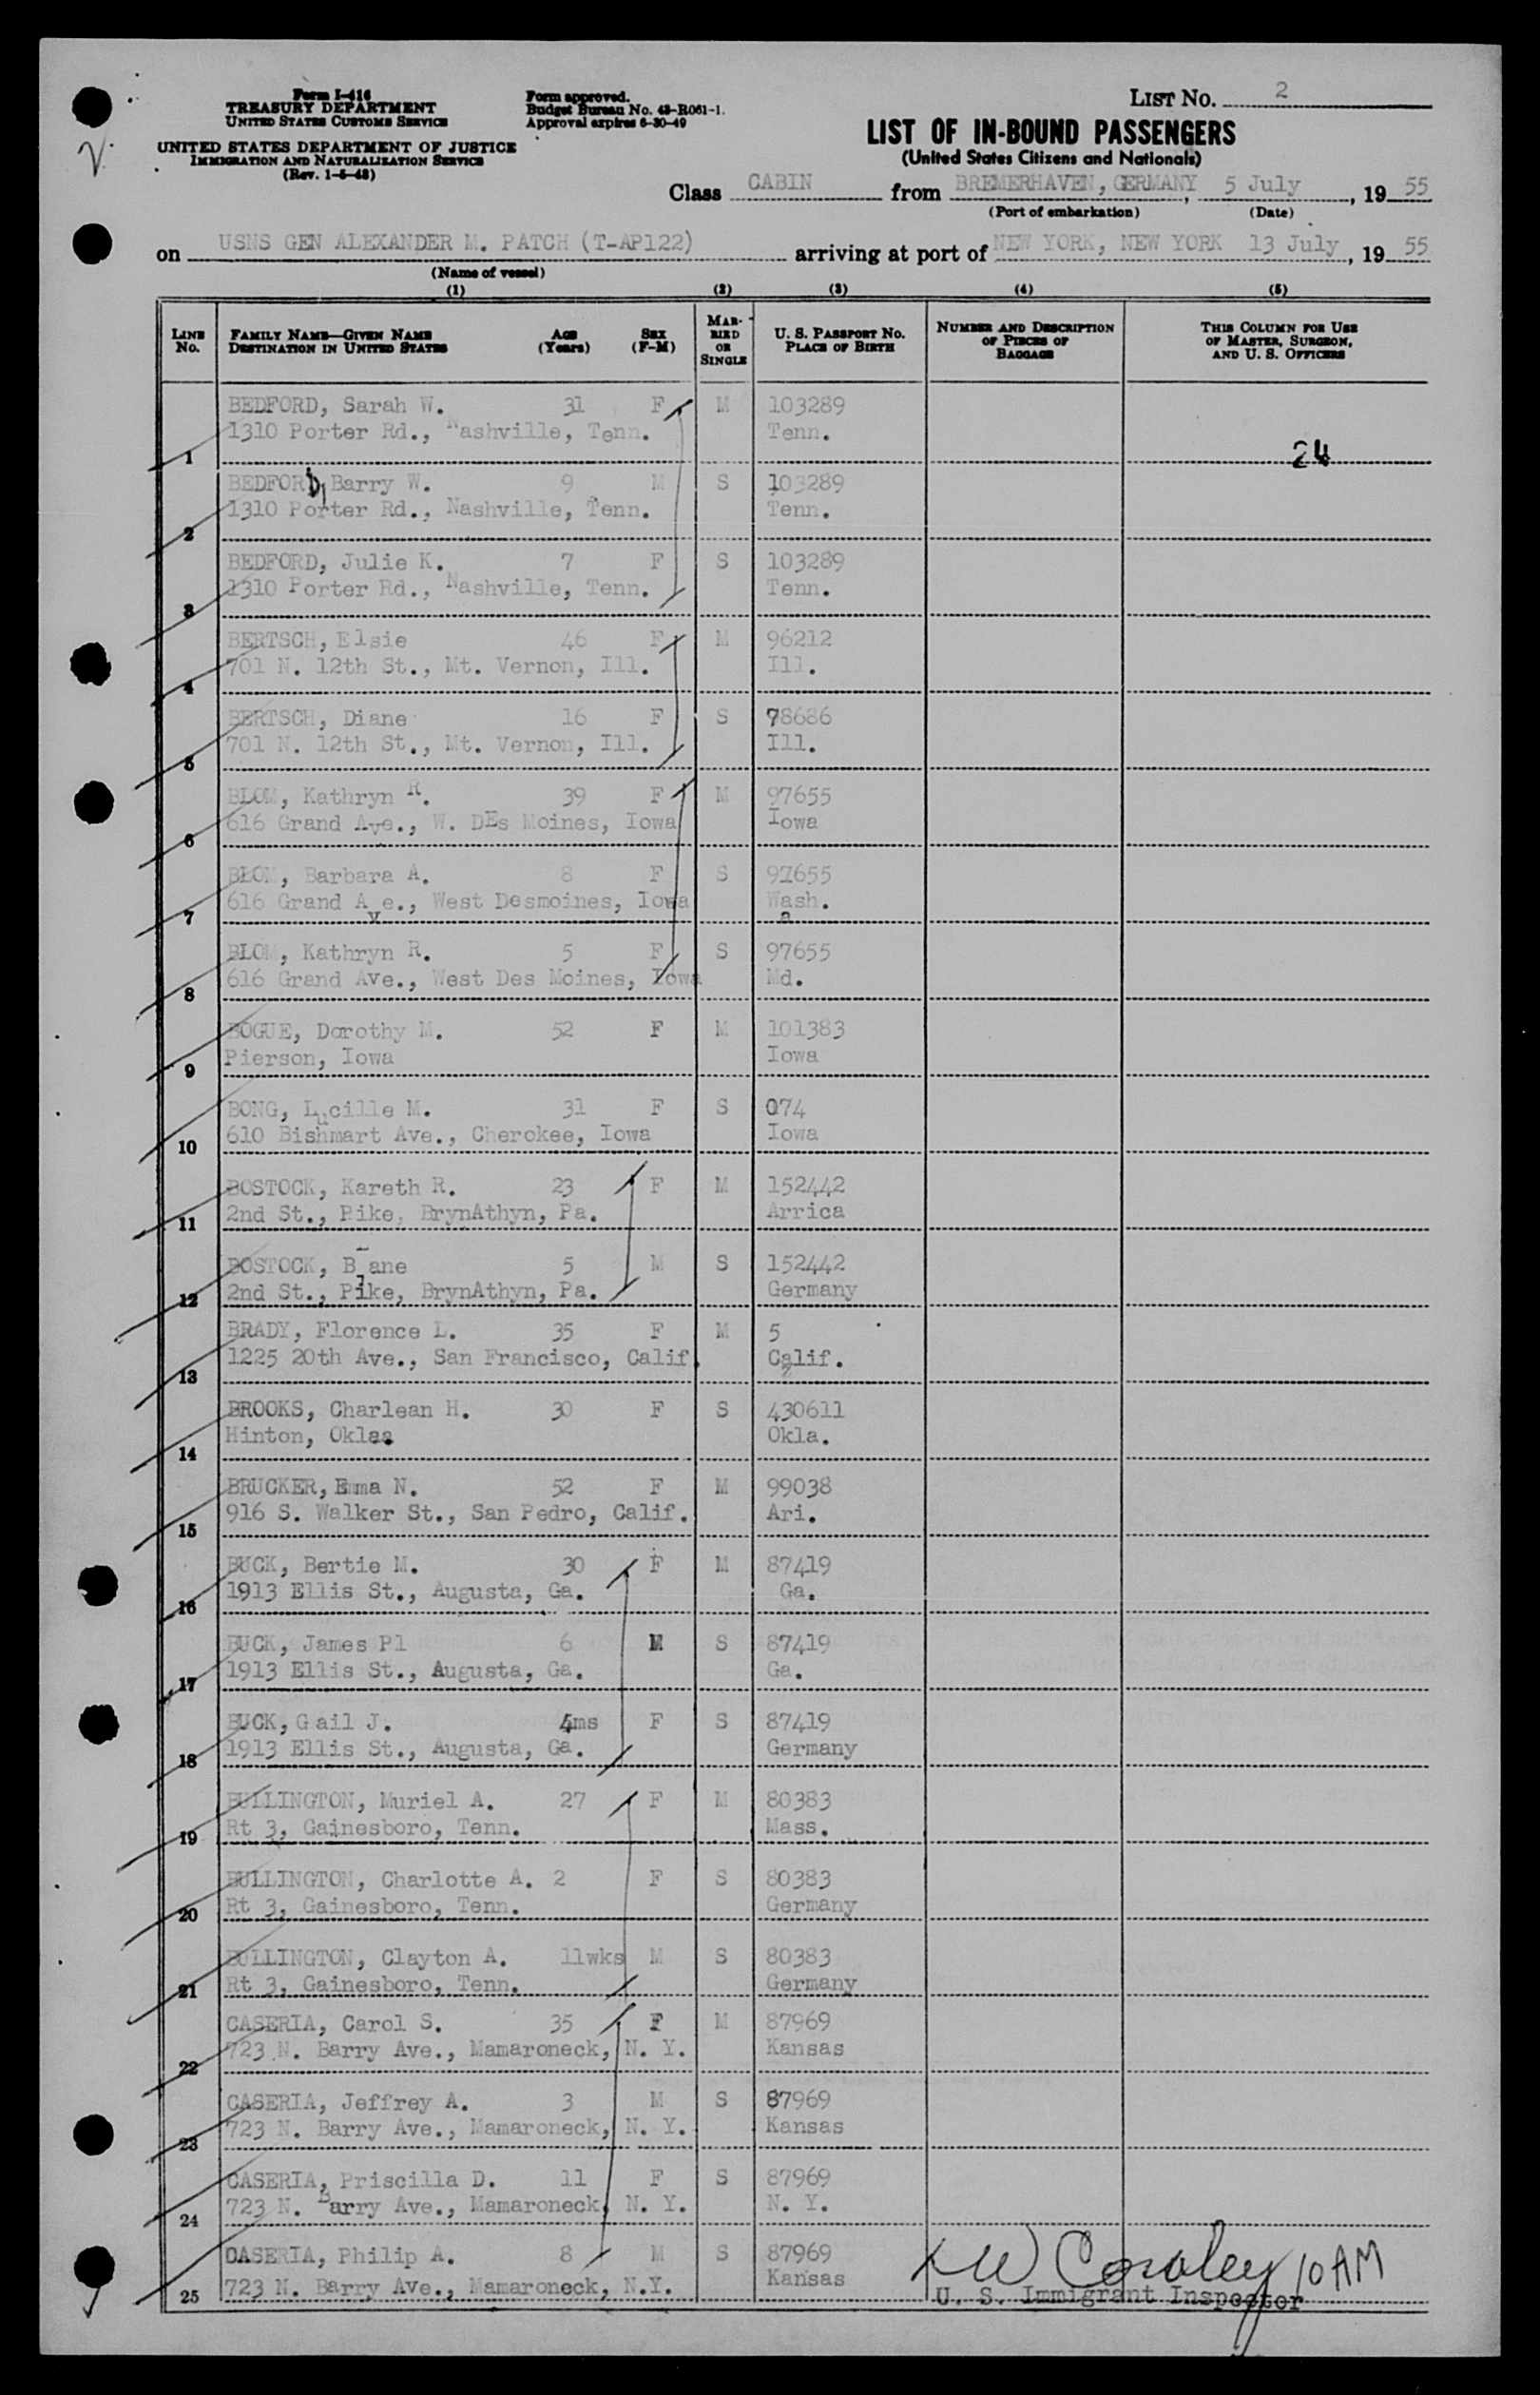 Form I-416
TREASURY DEPARTMENT
UNITED STATES CUSTOMS SERVICE
UNITED STATES DEPARTMENT OF JUSTICE
IMMIGRATION AND NATURALIZATION SERVICE
(Rev. 1-5-48)
Form approved.
Budget Bureau No. 43-R061-1.
Approval expires 6-30-49
LIST NO. 2
LIST OF IN-BOUND PASSENGERS
(United States Citizens and Nationals)
Class CABIN from BREMERHAVEN, GERMANY, 5 July, 19 55
(Port of embarkation) (Date)
on USNS GEN ALEXANDER M. PATCH (T-AP122) arriving at port of NEW YORK, NEW YORK 13 July, 19 55
(Name of vessel)
(1) (2) (3) (4) (5)
LINE No. FAMILY NAME—GIVEN NAME DESTINATION IN UNITED STATES AGE (Years) SEX (F-M) MARRIED OR SINGLE U. S. PASSPORT No. PLACE OF BIRTH NUMBER AND DESCRIPTION OF PIECES OF BAGGAGE THIS COLUMN FOR USE OF MASTER, SURGEON, AND U. S. OFFICERS
BEDFORD, Sarah W. 31 F M 103289
1310 Porter Rd., Nashville, Tenn. Tenn.
1 24
BEDFORD, Barry W. 9 M S 103289
1310 Porter Rd., Nashville, Tenn. Tenn.
2
BEDFORD, Julie K. 7 F S 103289
1310 Porter Rd., Nashville, Tenn. Tenn.
3
BERTSCH, Elsie 46 F M 96212
701 N. 12th St., Mt. Vernon, Ill. Ill.
4
BERTSCH, Diane 16 F S 78686
701 N. 12th St., Mt. Vernon, Ill. Ill.
5
BLOM, Kathryn R. 39 F M 97655
616 Grand Ave., W. DEs Moines, Iowa Iowa
6
BLOM, Barbara A. 8 F S 97655
616 Grand Ave., West Desmoines, Iowa Wash.
7
BLOM, Kathryn R. 5 F S 97655
616 Grand Ave., West Des Moines, Iowa Md.
8
BOGUE, Dorothy M. 52 F M 101383
Pierson, Iowa Iowa
9
BONG, Lucille M. 31 F S 074
610 Bishmart Ave., Cherokee, Iowa Iowa
10
BOSTOCK, Kareth R. 23 F M 152442
2nd St., Pike, BrynAthyn, Pa. Arrica
11
BOSTOCK, Blane 5 M S 152442
2nd St., Pike, BrynAthyn, Pa. Germany
12
BRADY, Florence L. 35 F M 5
1225 20th Ave., San Francisco, Calif. Calif.
13
BROOKS, Charlean H. 30 F S 430611
Hinton, Okla. Okla.
14
BRUCKER, Emma N. 52 F M 99038
916 S. Walker St., San Pedro, Calif. Ari.
15
BUCK, Bertie M. 30 F M 87419
1913 Ellis St., Augusta, Ga. Ga.
16
BUCK, James Pl 6 M S 87419
1913 Ellis St., Augusta, Ga. Ga.
17
BUCK, Gail J. 4ms F S 87419
1913 Ellis St., Augusta, Ga. Germany
18
BULLINGTON, Muriel A. 27 F M 80383
Rt 3, Gainesboro, Tenn. Mass.
19
BULLINGTON, Charlotte A. 2 F S 80383
Rt 3, Gainesboro, Tenn. Germany
20
BULLINGTON, Clayton A. 11wks M S 80383
Rt 3, Gainesboro, Tenn. Germany
21
CASERIA, Carol S. 35 F M 87969
723 N. Barry Ave., Mamaroneck, N. Y. Kansas
22
CASERIA, Jeffrey A. 3 M S 87969
723 N. Barry Ave., Mamaroneck, N. Y. Kansas
23
CASERIA, Priscilla D. 11 F S 87969
723 N. Barry Ave., Mamaroneck, N. Y. N. Y.
24
CASERIA, Philip A. 8 M S 87969
723 N. Barry Ave., Mamaroneck, N.Y. Kansas
25
10 AM
U. S. Immigrant Inspector